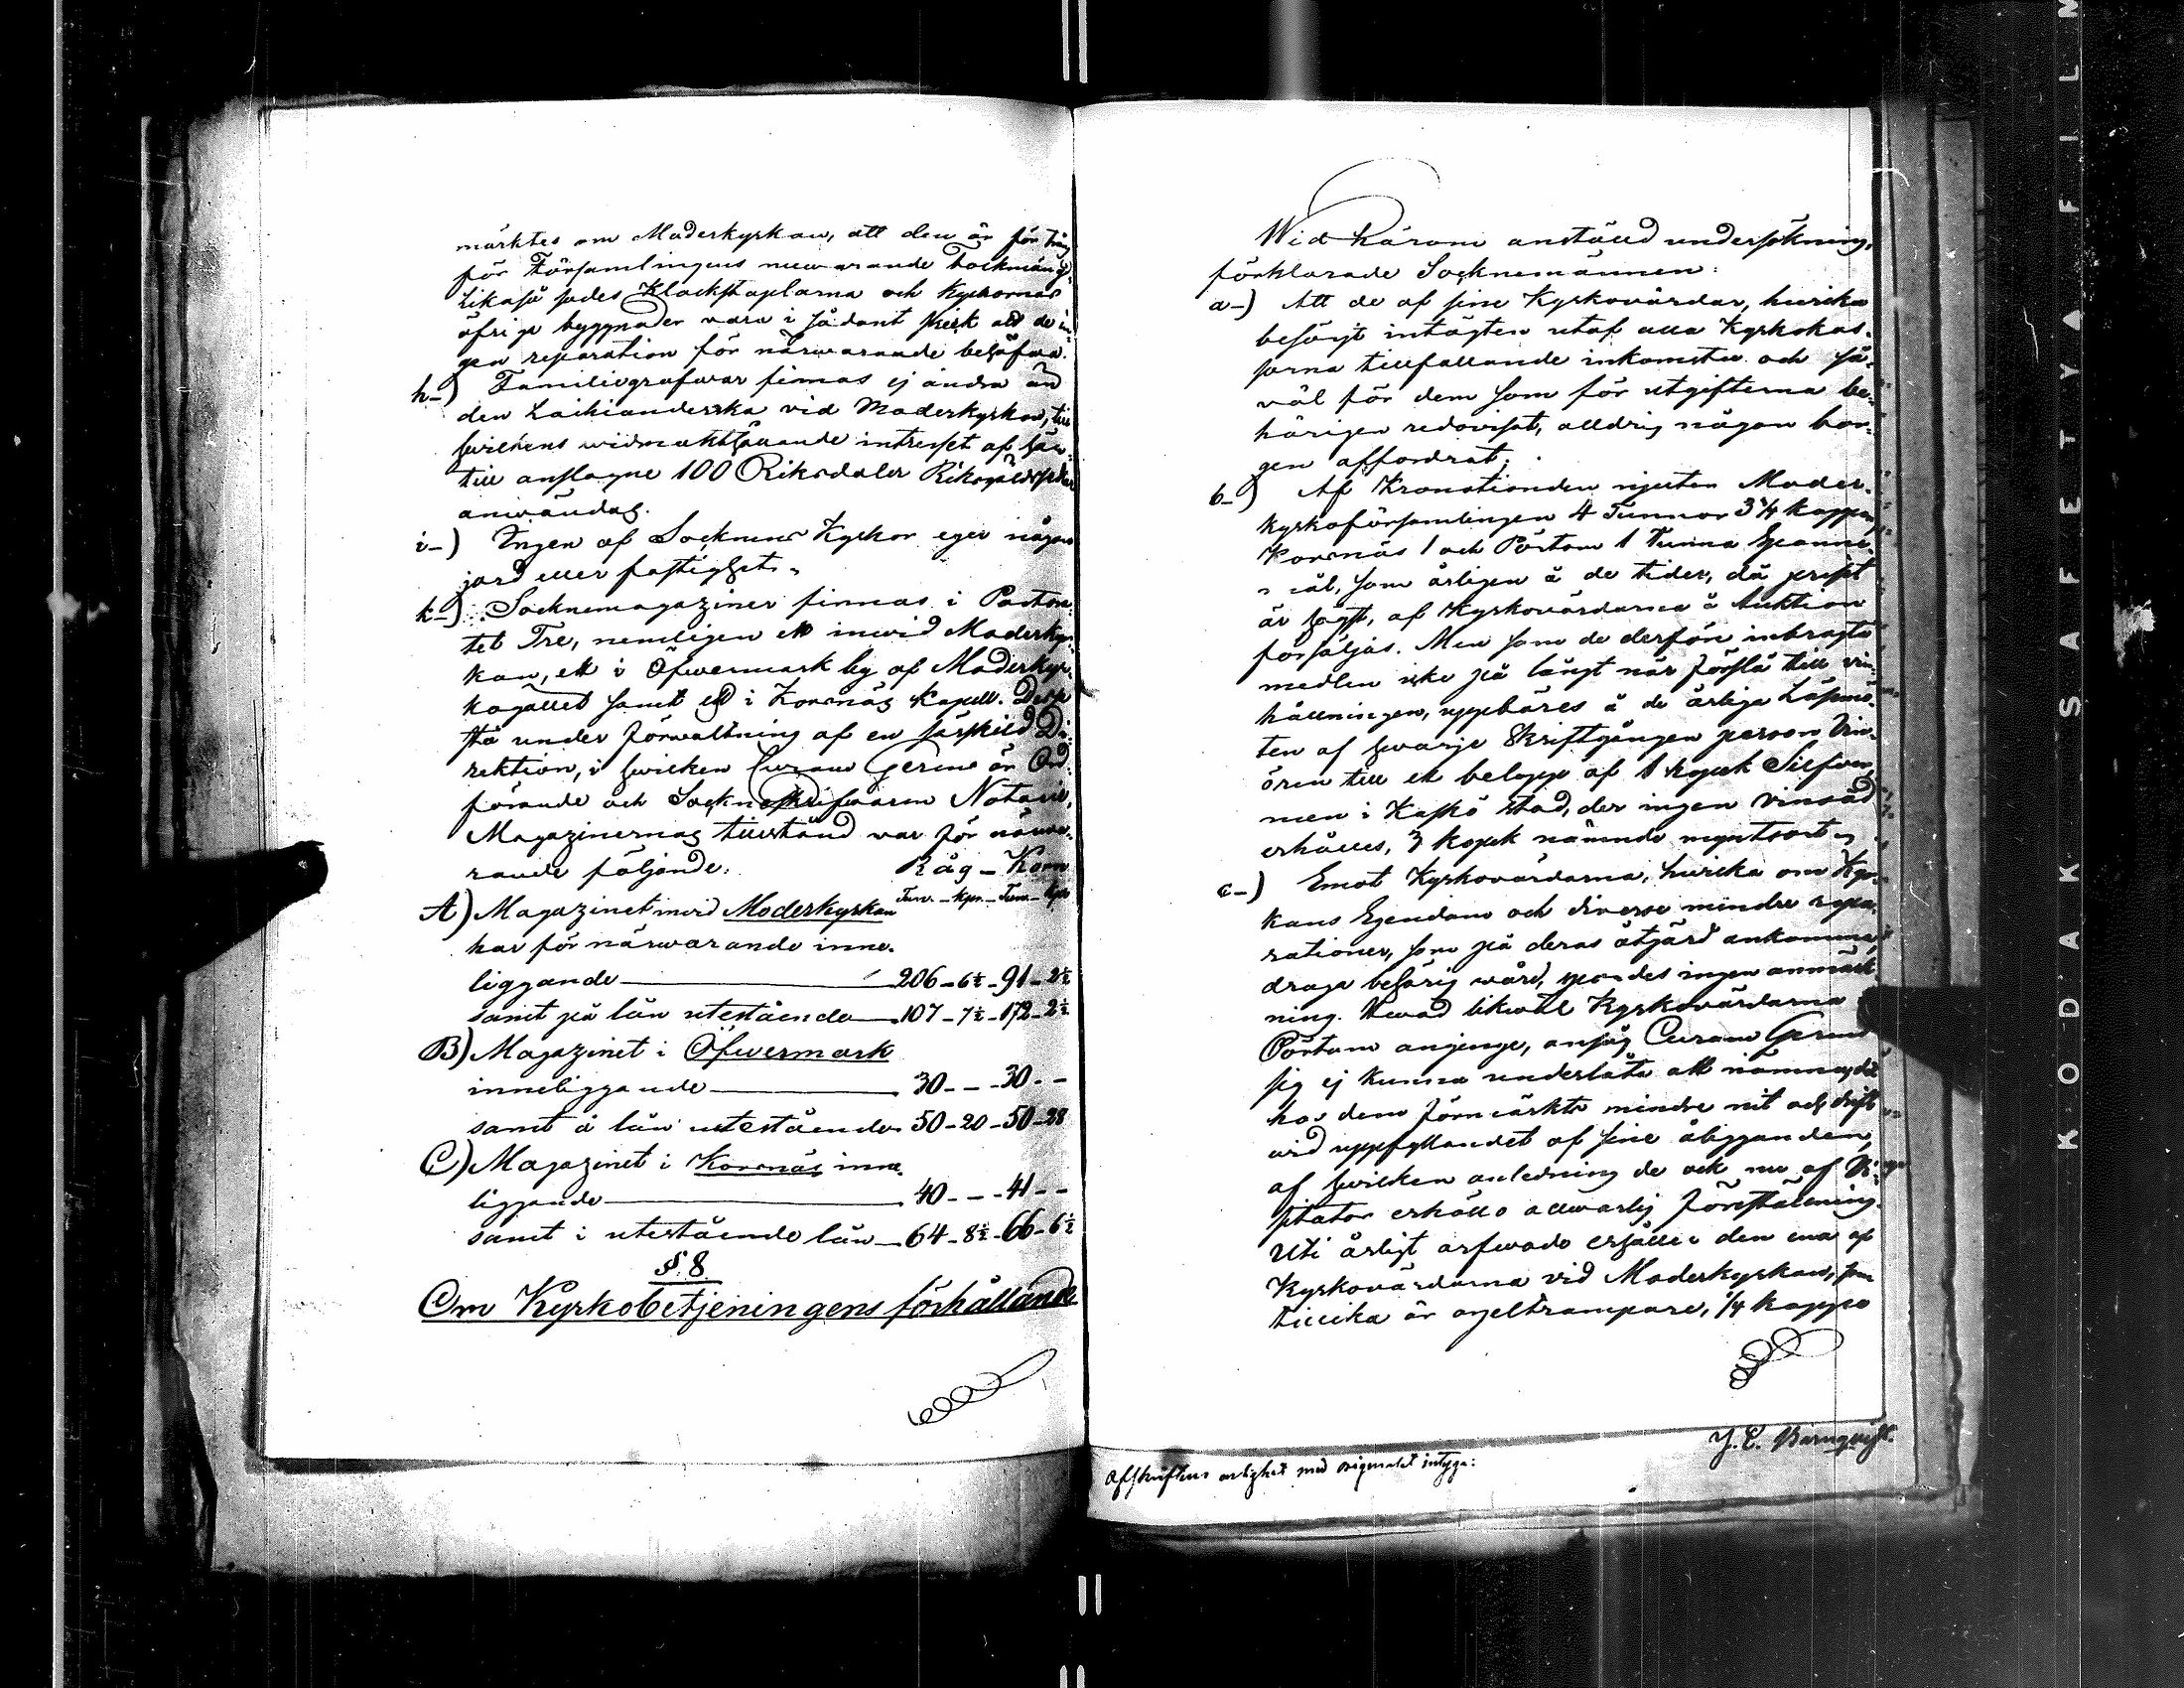 märktes om Moderkyrkan, att den är för trång
för Församlingens nuvarande folkmängd.
Likaså sades Klockstaplarna och Kyrkornas
öfrige byggnader vara i sådant skick att de in-
gen reparation för närwarande behöfwa.
h-) Familiegrafwar finnas ej andra än
den Laihianderska vid Moderkyrkan, till
hwilkens widmakthållande intresset af här-
till anslagne 100 Riksdaler Riksgäldssedlar
användas.
i-) Ingen af Socknens Kyrkor eger någon
jord eller fastighet.
k-) Socknemagaziner finnas i Pastora-
tet Tre, nemligen ett inwid Moderkyr-
kan, ett i Öfwermark by af Moderkyr-
kogället samt ett i Korsnäs Kapell. Desse
stå under förwaltning af en särskild Di-
rektion, i hwilken Curam Gerens är Ord-
förande och Sockneskrifwaren Notarie,
Magazinernas tillstånd war för närwa-
rande följande: Råg - Korn
Tunn. - Kpr. - Tunn. - Kpr
A) Magazinet inwid Moderkyrkan
har för närwarande inne-
liggande 206 - 6½ - 91 - 2½
samt på lån utestående 107 - 7½ - 172 - 2½
B) Magazinet i Öfwermark
inneliggande 30 - - - 30 - -
samt å lån utestående 50 - 20 - 50 - 28
C) Magazinet i Korsnäs inne-
liggande 40 - - - 41 - -
samt i utestående lån 64 - 8½ - 66 - 6½
§. 8
Om Kyrkobetjeningens förhållande
Wid härom anställd undersökning,
förklarade Socknemännen:
a-) Att de af sine Kyrkovärdar, hwilka
besörjt intägten utaf alla Kyrkokas-
sorna tillfallande inkomster och så-
väl för dem som för utgifterna be-
hörigen redovisat, alldrig någon bor-
gen affordrat.
b-) Af Kronotionden njuter Moder-
kyrkoförsamlingen 4 Tunnor 3 ¼ kappar
Korsnäs 1 och Pörtom 1 Tunna Spanne-
mål, som årligen å de tider, då priset
är högst, af Kyrkovärdarna å Auktion
försäljas. Men som de derför inbragte
medlen icke på långt när förslå till vin-
hållningen, uppbäres å de årliga Läsmö-
ten af hwarje Skriftgången person Vin-
ören till ett belopp af 1 kopek Silfwer,
men i Kaskö stad, der ingen vinsäd
erhålles, 3 kopek nämnde myntsort.
c-) Emot Kyrkovärdarna, hwilka om Kyr-
kans Egendom och diverse mindre repa-
rationer, som på deras åtgärd ankomma,
draga behörig wård, spordes ingen anmärk-
ning. Hwad likwäl Kyrkovärdarna
Pörtom anginge, ansåg Curam Gerens
sig ej kunna underlåta att nämna, det
hos dem förmärkts mindre nit och drift
vid uppfyllandet af sine åligganden,
af hwilken anledning de ock nu af Vi-
sitator erhöllo allwarlig föreställning.
Uti årligt arfwode erhåller den ena af
Kyrkovärdarna vid Moderkyrkan, som
tillika är orgeltrampare, ¼ kappe
Afskriftens riktighet med originalet intyga:
KODAK SAFETY FILM